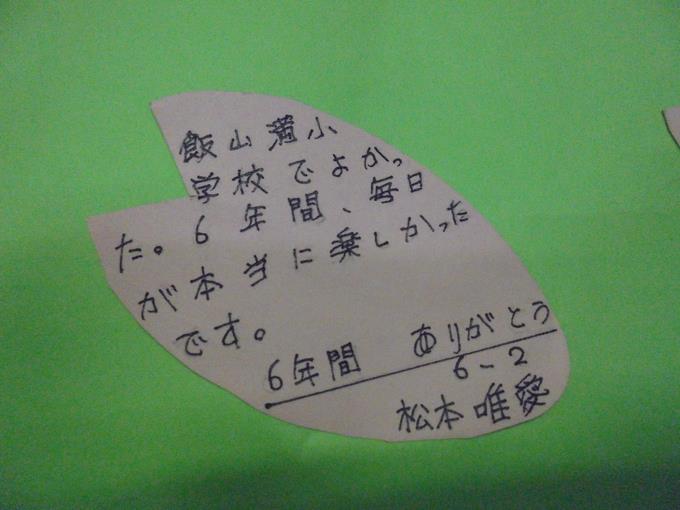 飯山満小
学校でよかっ
た。6年間、毎日
が本当に楽しかった
です。
6年間 ありがとう
6-2
松本唯愛